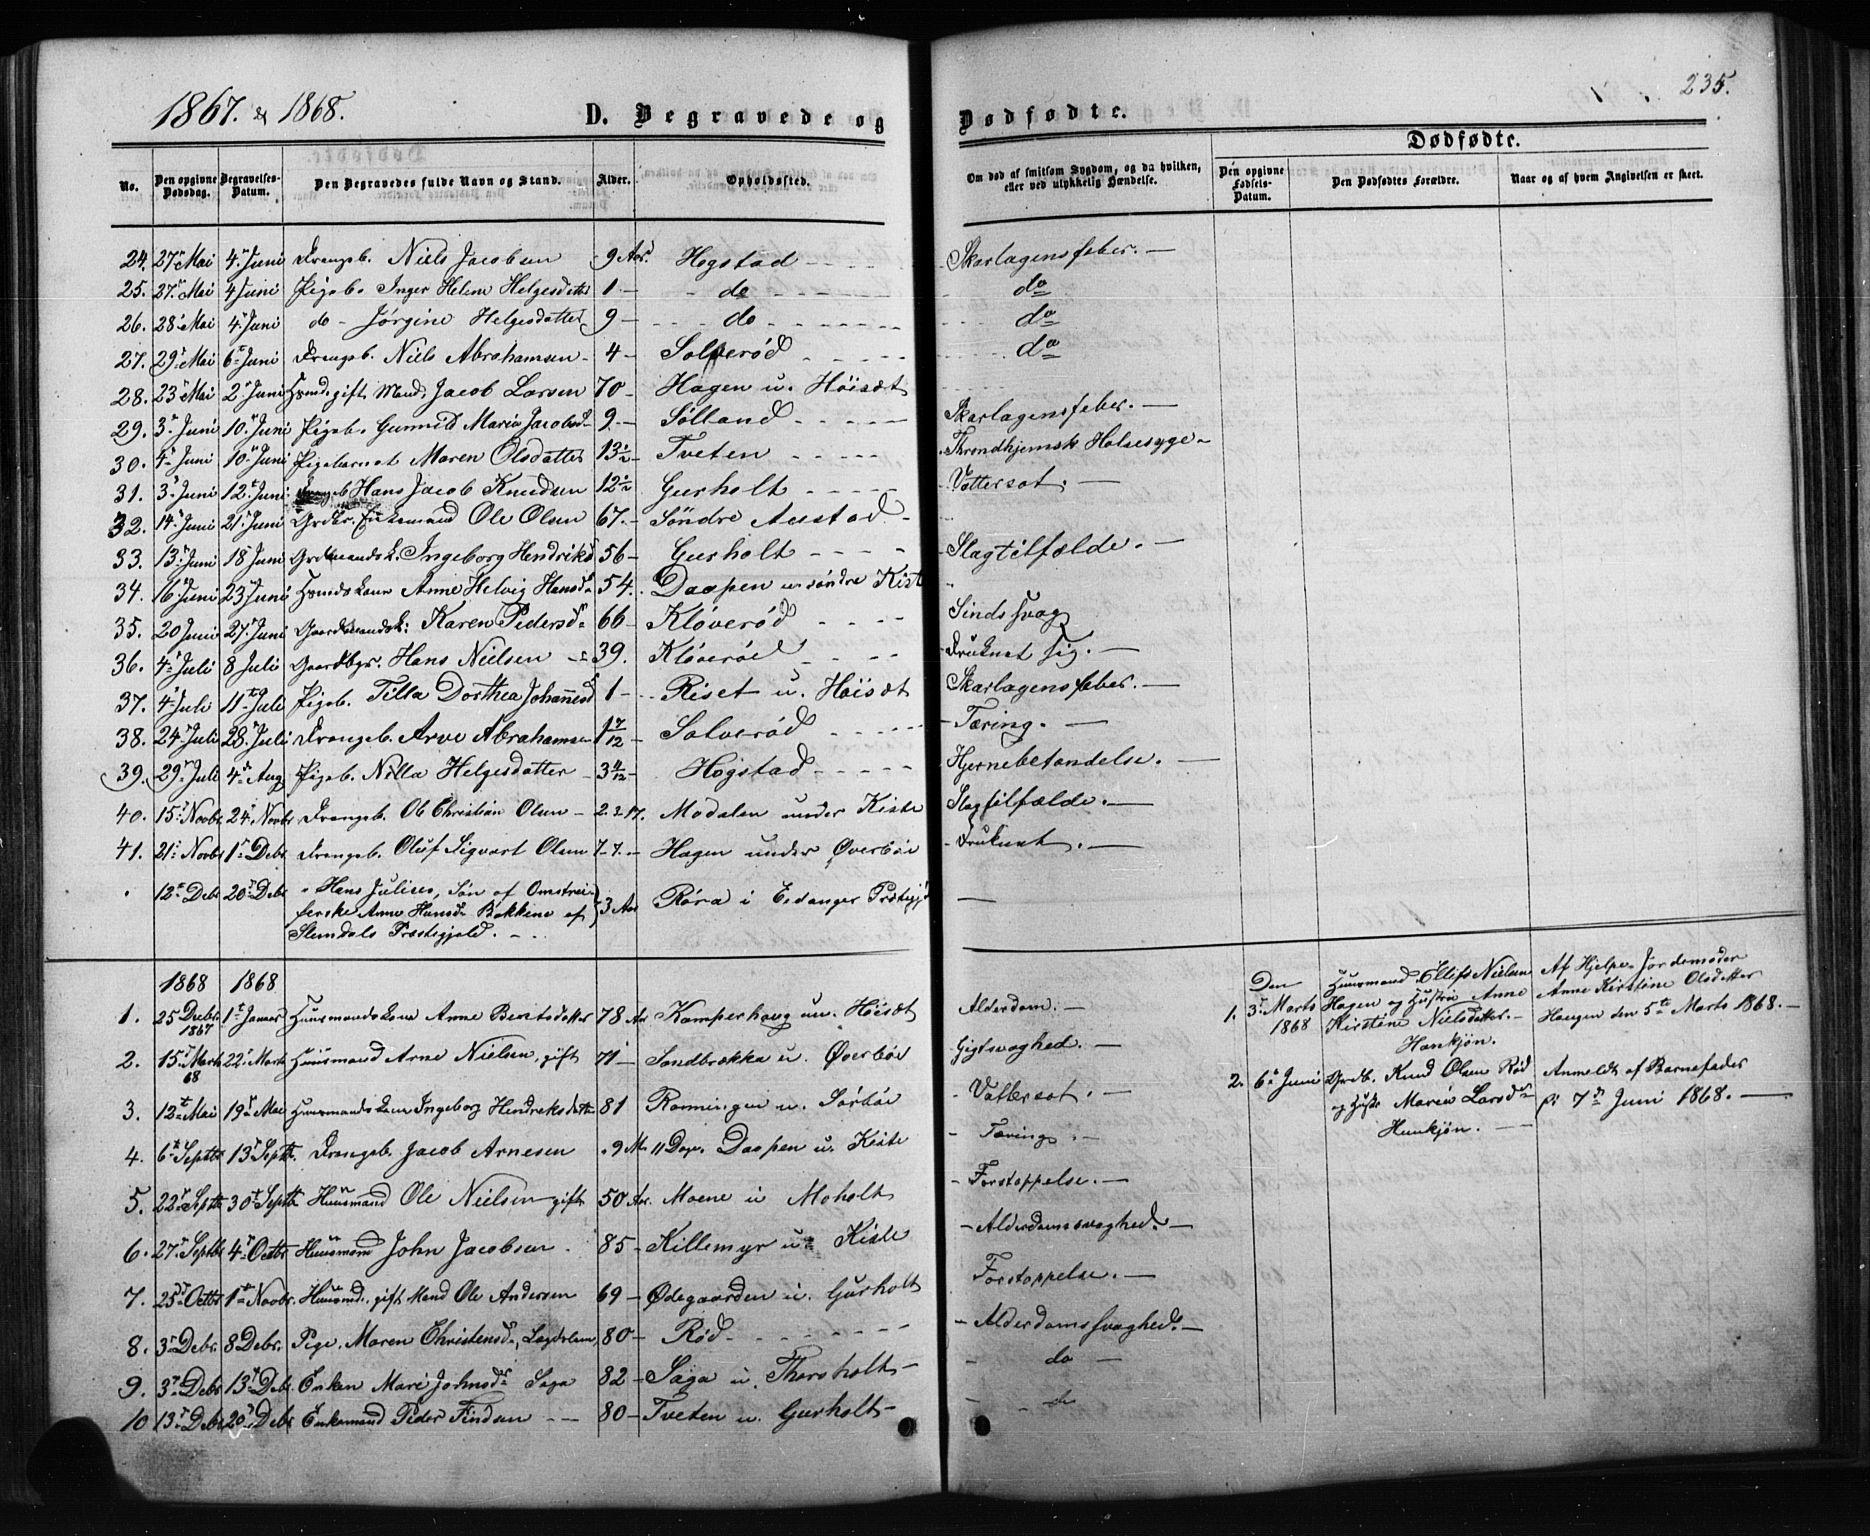 1867. & 1868.
D. Begravede og Dødfødte.
235.
Dødfødte.
No.
Den opgivne Dødsdag.
Begravelses-Datum.
Den Begravedes fulde Navn og Stand.
Alder.
Opholdssted.
Om død af smitsom Sygdom, og da hvilken, eller ved ulykkelig Hændelse.
Den opgivne Fødsels-Datum.
Den Dødfødtes Forældre.
Naar og af hvem Angivelsen er skeet.
24. 27 Mai 4 Juni Drengeb. Niels Jacobsen 9 Aar. Hogstad Skarlagensfeber.
25. 27 Mai 4 Juni Pigeb. Inger Helene Helgesdatter 1 do do
26. 28 Mai 4 Juni do Jørgine Helgesdatter 9 do do
27. 29 Mai 6 Juni Drengeb. Niels Abrahamsen 4 Solverød do
28. 23 Mai 2 Juni Husmd. gift Mand Jacob Larsen 70 Hagen u. Høisæt
29. 3 Juni 10 Juni Pigeb. Gunnild Maria Jacobsd 9 Sølland Skarlagensfeber.
30. 4 Juni 10 Juni Pigebarnet Maren Olsdatter 13½ Tveten Throndhjemsk Halssyge
31. 3 Juni 12 Juni Drengeb Hans Jacob Knudsen 12½ Gurholt Vattersot.
32. 14 Juni 21 Juni Grdbr. Enkemand Ole Olsen 67 Søndre Austad
33. 13 Juni 18 Juni Grdmandsk. Ingeborg Hendriksd 56 Gurholt Slagtilfælde.
34. 16 Juni 23 Juni Husmdskone Anne Helvig Hansd. 54. Daapen u. søndre Kiste
35. 20 Juni 27 Juni Gaardmandsk: Karen Pedersd. 66 Kløverød Sindssvag
36. 4 Juli 8 Juli Gaardbgr. Hans Nielsen 39. Kløverød Druknet sig.
37. 4 Juli 11 Juli Pigeb. Tilla Dorthea Johannesd 1 Riset u. Høisæt Skarlagensfeber.
38. 24 Juli 28 Juli Drengeb. Arve Abrahamsen 1 7/12 Solverød Tæring.
39. 29 Juli 4 Aug Pigeb. Nilla Helgesdatter 3 4/12 Hogstad Hjernebetændelse.
40. 15 Novbr 24 Novbr Drengeb. Ole Christian Olsen Modalen under Kiste Slagtilfælde.
41. 21 Novbr 1 Debr Drengeb. Oluf Sigvart Olsen 7 Hagen under Øverbøe Druknet.
12te Debr 20 Debr Hans Julius, Søn af Omstrei-
ferske Anne Hansd Bakkene af
Slemdals Præstegjeld. 3 Aar Røra i Eidanger Præstegj
1868 1868
1. 25 Debr 1867 1ste Januar Huusmandskone Anne Bertsdatter 78 Aar Kamperhoug un. Høisæt Alderdom.
2. 15 Marts 68 22 Marts Huusmand Arne Nielsen, gift 71 Sandbrækka u. Øverbøe Gigtsvaghed.
3. 12te Mai 19 Mai Huusmandskone Ingeborg Hendriksdatter 81 Rønningen u. Sørbøe Vattersot.
4. 6te Septbr 13 Septbr. Drengeb. Jacob Arnesen 9 M 11 Dage Daapen u. Kiste Tæring.
5. 22 Septbr 30te Septbr Huusmand Ole Nielsen gift 50 Aar. Moene u Moholt Forstoppelse.
6. 27 Septbr 4 Octbr Huusmand John Jacobsen 85 Killemyr u. Kiste Alderdomssvaghed.
7. 25 Octbr 1ste Novbr. Huusmd. gift Mand Ole Andersen 69 Ødegaarden u. Gurholt Forstoppelse.
8. 3 Debr. 8 Debr. Pige, Maren Christensd., Lægdslem, 80 Rød Alderdomssvaghed.
9. 3 Debr 13 Debr Enken Mari Johnsd Saga 82 Saga u. Thorsholt do
10. 13 Debr 20 Debr Enkemand Peder Findsen 80 Tveten u. Gurholt do
1. Den 3 Marts 1868
Huusmand Ellif Nielsen
Hagen og Hustru Anne
Kirstine Nielsdatter.
Hankjøn.
Af Hjelpe-Jordemoder
Anne Kirstine Olsdatter
Haugen den 5te Marts 1868.
2. 6 Juni Grdb. Knud Olsen Rød
og Hustr Maria Larsd
Hunkjøn.
Anmeldt af Barnefader
7de Juni 1868.